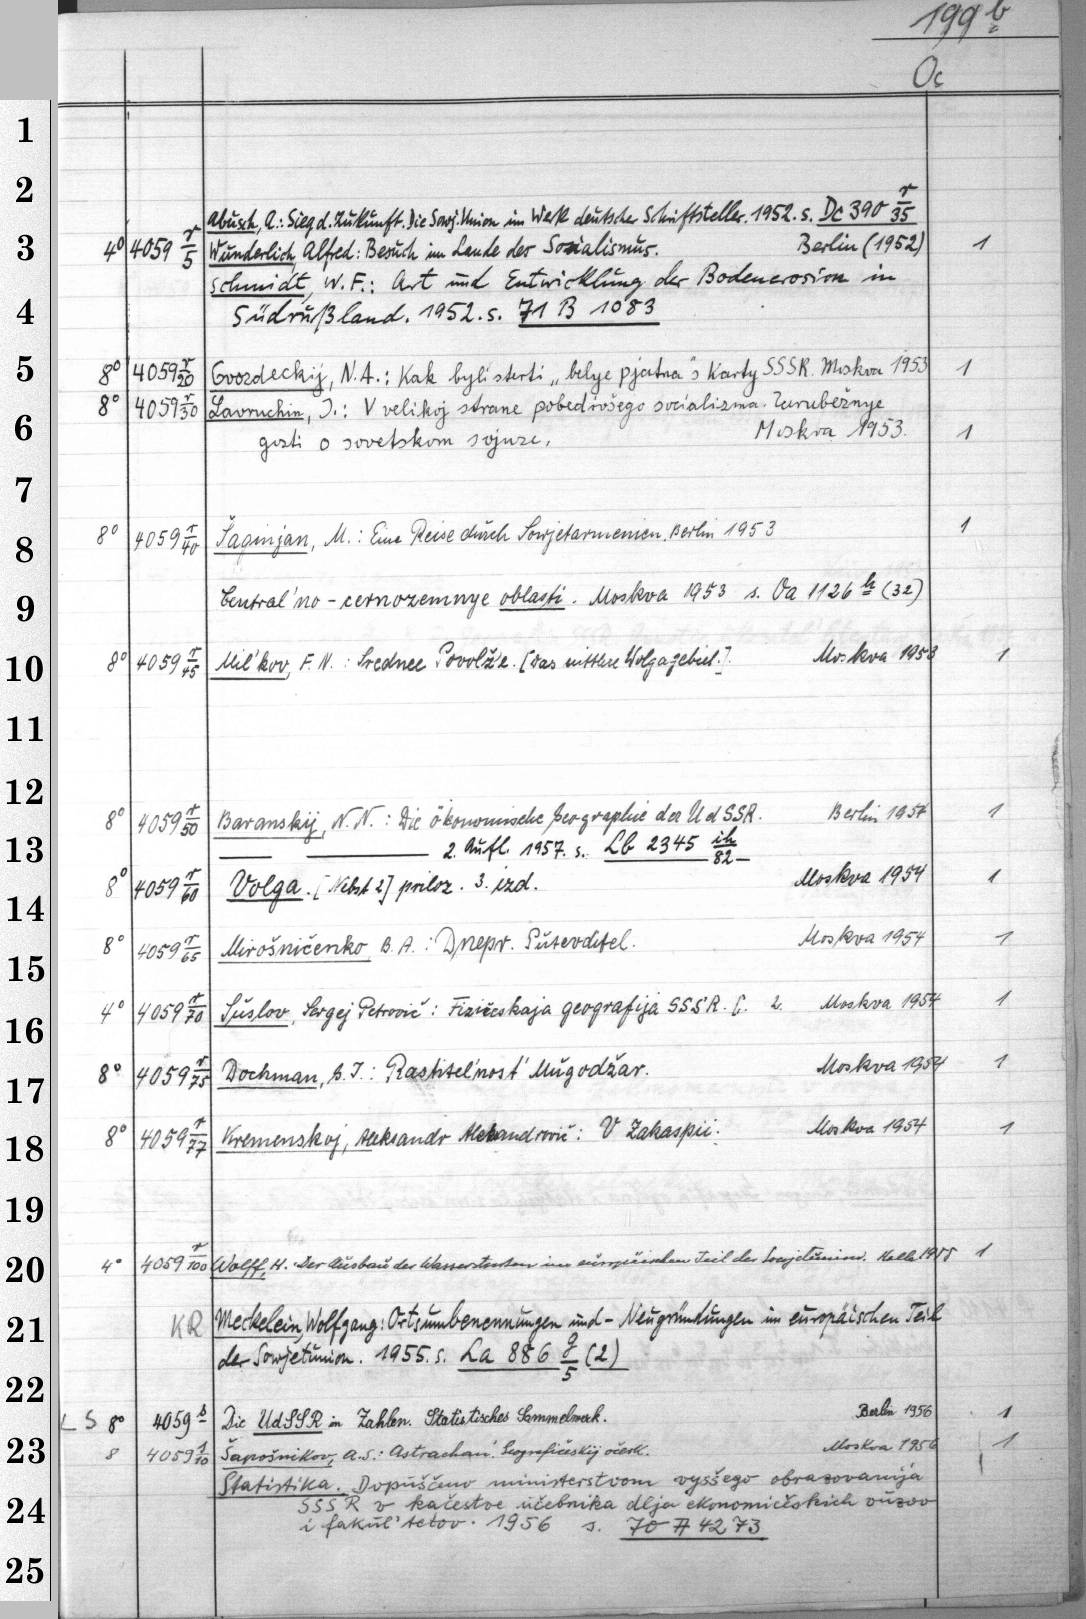 199 b
Oc
1
2
Abusch, A.: Sieg d. Zukunft. Die Sowj. Union im Werk deutscher Schriftsteller. 1952. s. Dc 390 r/35
3
4° 4059 r/5 Wunderlich Alfred: Besuch im Lande des Sozialismus. Berlin (1952) 1
Schmidt, W. F.: Art und Entwicklung der Bodenerosion in
4
Südrußland. 1952. s. 71 B 1083
5
8° 4059 r/20 Gvozdeckij, N. A.: Kak byli sterti „belye pjatna" s Karty SSSR. Moskva 1953 1
8° 4059 r/30 Lavruchin, I.: V velikoj strane pobedivšego socializma. Zarubežnye
6
gosti o sovetskom sojuze. Moskva 1953. 1
7
8° 4059 r/40 Šaginjan, M.: Eine Reise durch Sowjetarmenien. Berlin 1953 1
8
9
Central'no-cernozemnye oblasti. Moskva 1953 s. Oa 1126 h (32)
10
8° 4059 r/45 Mil'kov, F. N.: Srednee Povolž'e. [Das mittlere Wolgagebiet.]. Moskva 1953 1
11
12
8° 4059 r/50 Baranskij, N. N.: Die ökonomische Geographie der UdSSR. Berlin 1954 1
13
2. Aufl. 1957. s. Lb 2345 ih/82
8° 4059 r/60 Volga. [Nebst 2] priloz. 3. izd. Moskva 1954 1
14
8° 4059 r/65 Mirošničenko B. A.: Dnepr. Putevoditel. Moskva 1954 1
15
4° 4059 r/70 Suslov, Sergej Petrovič: Fizičeskaja geografija SSSR. 2. Moskva 1954 1
16
8° 4059 r/75 Dochman, G. I.: Rastitel'nost' Mugodžar. Moskva 1954 1
17
8° 4059 r/77 Kremenskoj, Aleksandr Aleksandrovič: V Zakaspii. Moskva 1954 1
18
19
4° 4059 r/100 Wolff, H. Der Ausbau der Wasserstraßen im europäischen Teil der Sowjetunion. Halle 1955 1
20
KR Meckelein, Wolfgang: Ortsumbenennungen und -Neugründungen im europäischen Teil
21
der Sowjetunion. 1955. s. La 886 g/5 (2)
22
LS 8° 4059 s Die UdSSR in Zahlen. Statistisches Sammelwerk. Berlin 1956 1
23
8 4059 s/10 Šapošnikov, A. S.: Astrachan'. Geografičeskij očerk. Moskva 1956 1
Statistika. Dopuščeno ministerstvom vysšego obrazovanija
24
SSSR v kačestve učebnika dlja ekonomičskich vuzov
i fakul'tetov. 1956 s. 70 A 4273
25